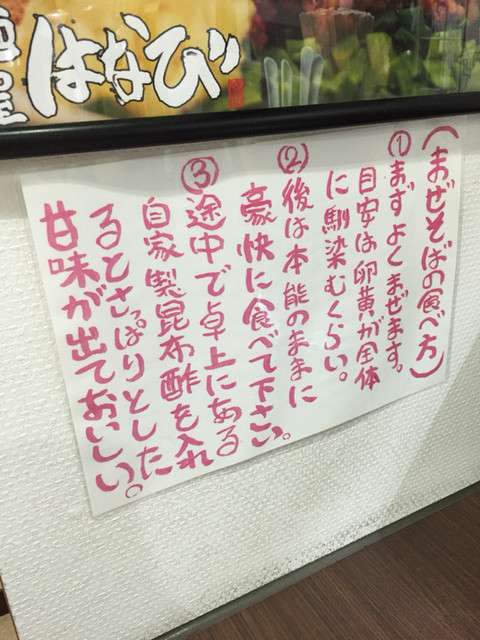 はなび
(まぜそばの食べ方)
①まずよくまぜます。
目安は卵黄が全体
に馴染むくらい。
②後は本能のままに
豪快に食べて下さい。
③途中で卓上にある
自家製昆布酢を入れ
るとさっぱりとした
甘味が出ておいしい。